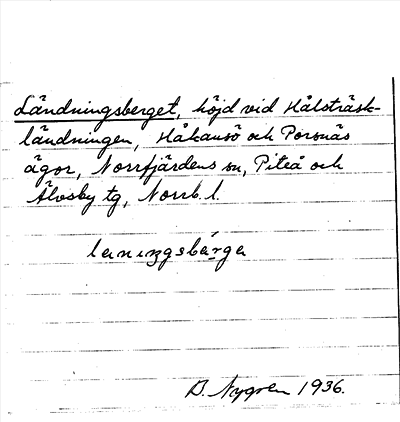 Ländningsberget, höjd vid Hålsträsk-
ländningen, Håkansö och Porsnäs
ägor, Norrfjärdens sn, Piteå och
Älvsby tg, Norrb. l.
laningsbärga
D. Nygren 1936.